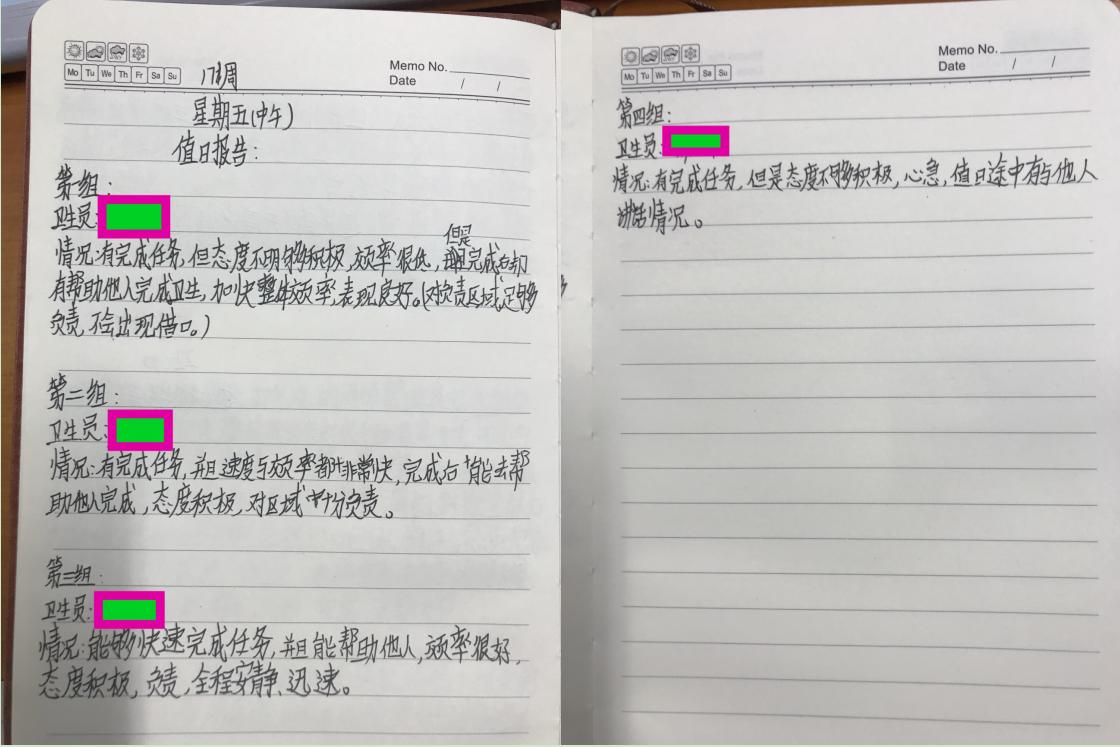 Mo Tu We Th Fr Sa Su
Memo No.
Date / /
17周
星期五(中午)
值日报告:
第一组:
卫生员:
情况:有完成任务,但态度不够积极,效率很低,但是完成后却
有帮助他人完成卫生,加快整体效率,表现良好。(对负责区域足够
负责,不会出现借口。)
第二组:
卫生员:
情况:有完成任务,并且速度与效率都非常快,完成后能去帮
助他人完成,态度积极,对区域十分负责。
第三组:
卫生员:
情况:能够快速完成任务,并且能帮助他人,效率很好,
态度积极,负责,全程安静、迅速。
Mo Tu We Th Fr Sa Su
Memo No.
Date / /
第四组:
卫生员:
情况:有完成任务,但是态度不够积极,心急,值日途中有与他人
讲话情况。